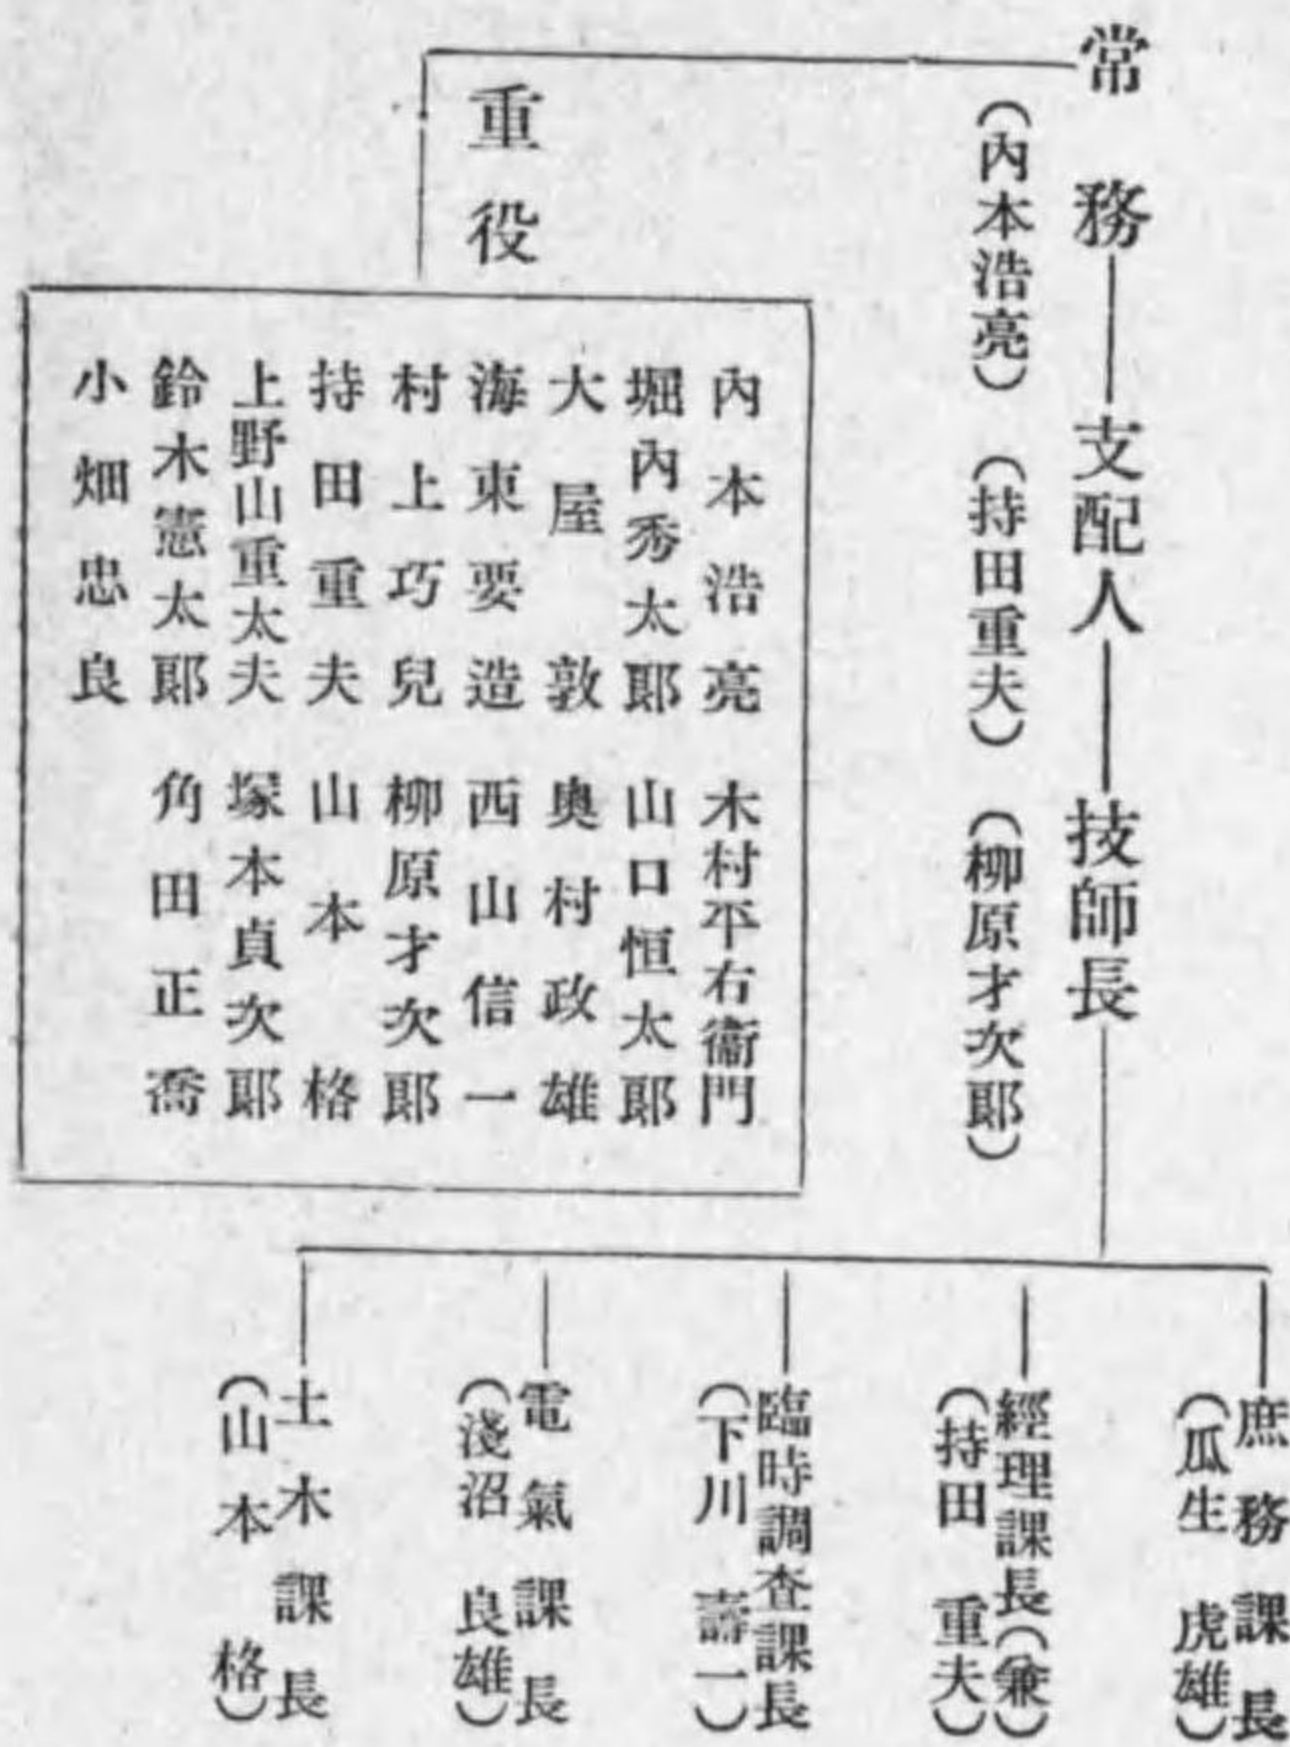 常務―支配人―技師長
(內本浩亮) (持田重夫) (柳原才次郞)
重役
內本浩亮 木村平右衞門
堀內秀太郞 山口恒太郞
大屋敦 奧村政雄
海東要造 西山信一
村上巧兒 柳原才次郞
持田重夫 山本格
上野山重太夫 塚本貞次郞
鈴木憲太郞 角田正喬
小畑忠良
庶務課長
(瓜生虎雄)
經理課長(兼)
(持田重夫)
臨時調査課長
(下川壽一)
電氣課長
(淺沼良雄)
土木課長
(山本格)